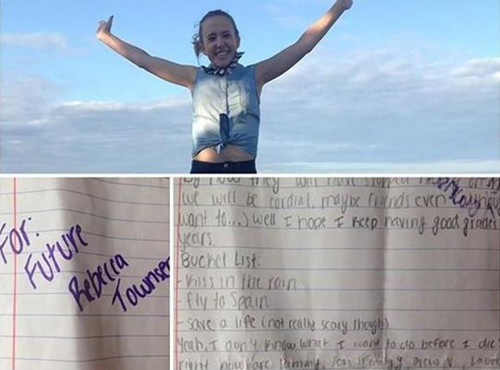 For:
Future
Rebecca
Townsen
now they will have stopped
(we will be cordial, maybe friends even
want to...) well I hope I keep having good grades
years.
Bucket List:
- Kiss in the rain
- fly to Spain
- save a life (not really scary though)
Yeah, I don't know what I want to do before I die
right now are